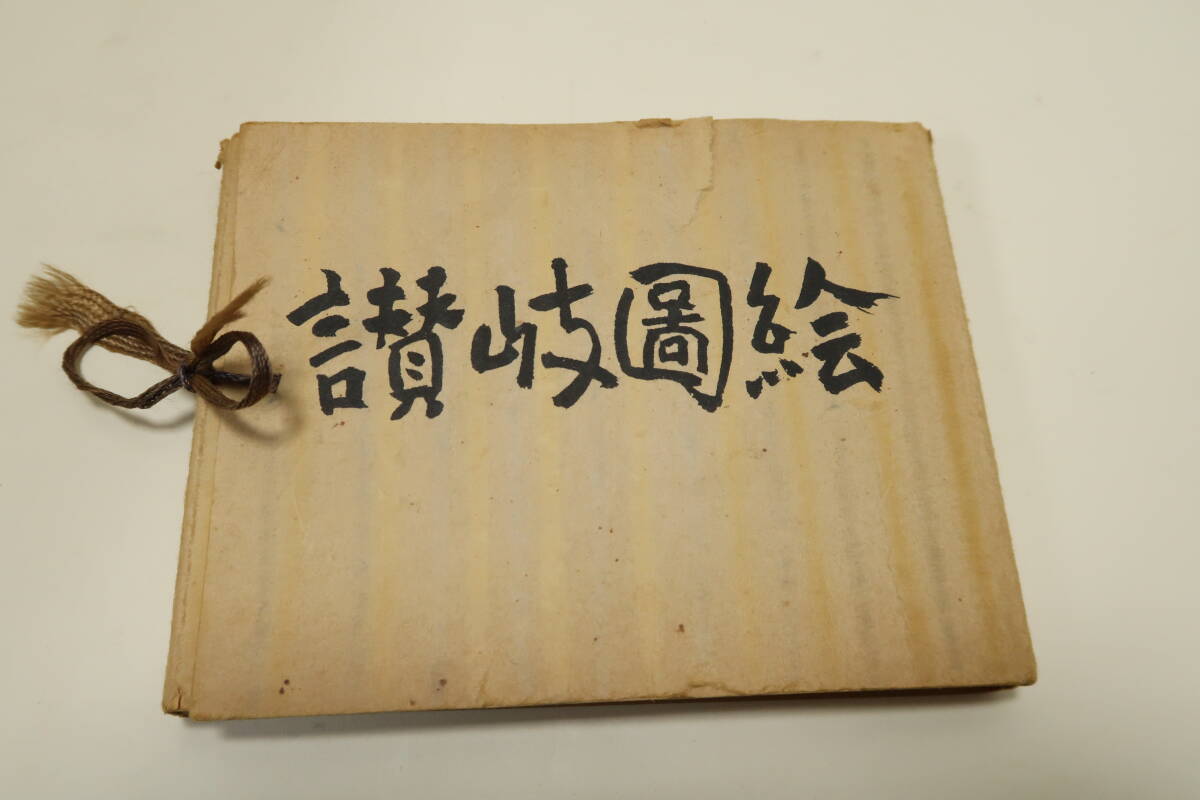 讃岐圖絵